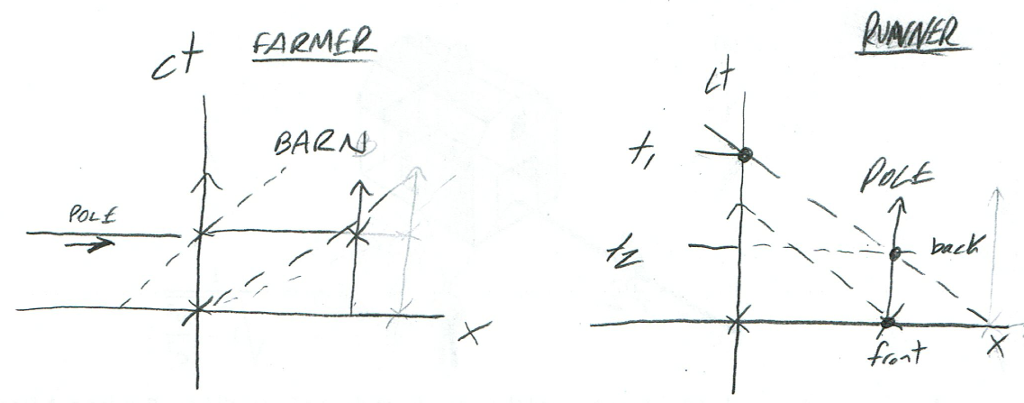 FARMER
ct
BARN
POLE
x
RUNNER
ct
t1
POLE
t2
back
front
x